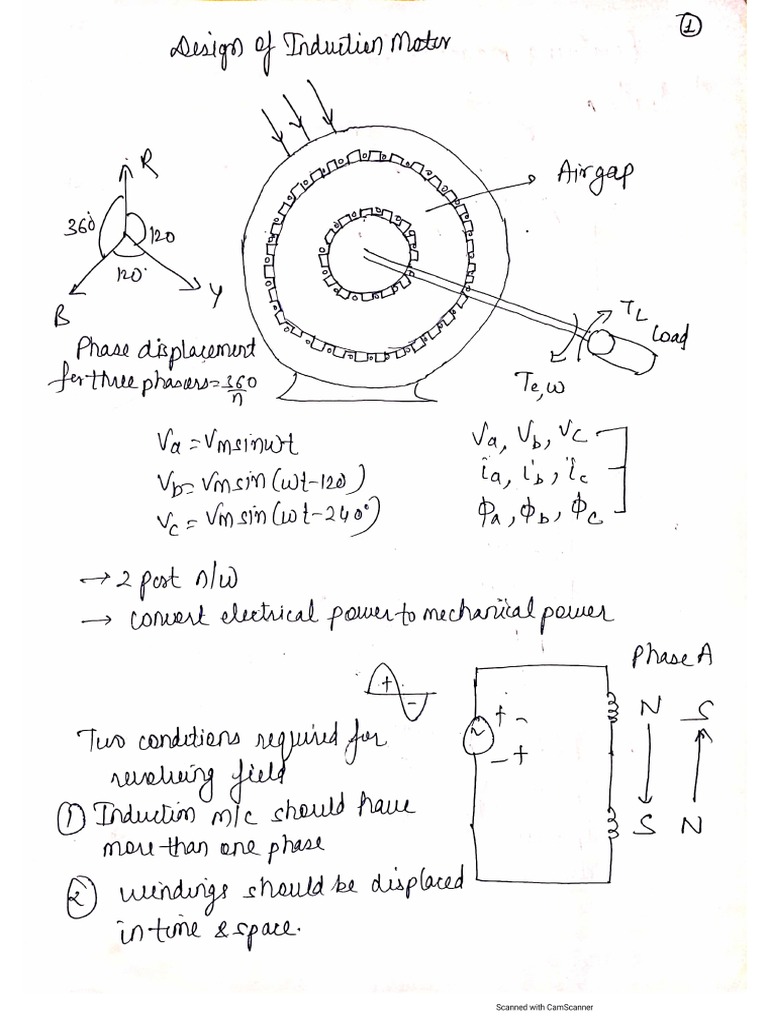 1
Design of Induction Motor
R
Air gap
360°
120
120°
B
Y
TL
Load
Te, ω
Phase displacement
for three phasers = 360/n
Va = Vm sin ωt
Vb = Vm sin (ωt-120)
Vc = Vm sin (ωt-240°)
Va, Vb, Vc
ia, ib, ic
ϕa, ϕb, ϕc
→ 2 port n/w
→ convert electrical power to mechanical power
Phase A
+
-
+ -
~
- +
N S
S N
Two conditions required for
revolving field
① Induction m/c should have
more than one phase
② windings should be displaced
in time & space.
Scanned with CamScanner